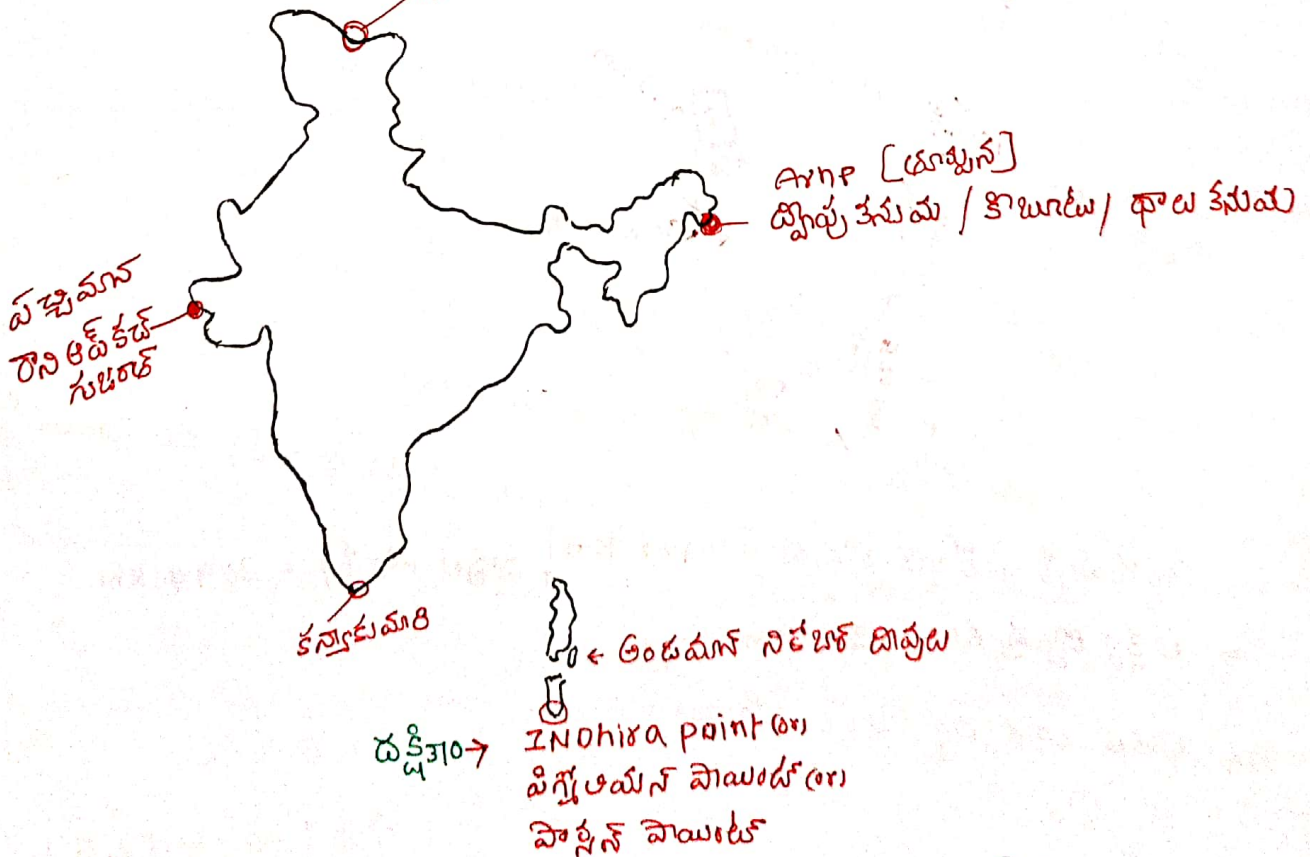 Arnp [తూర్పున]
ద్విపు కనుమ / కిబూటు / థాలు కనుమ
పశ్చిమాన
రాన్ ఆఫ్ కచ్
గుజరాత్
కన్యాకుమారి
← అండమాన్ నికోబార్ దీవులు
దక్షిణం → INDhira point (or)
పిగ్మోలియన్ పాయింట్ (or)
పార్సన్ పాయింట్